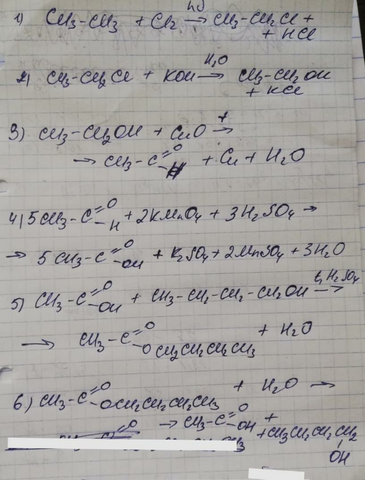 hν
1) CH3-CH3 + Cl2 → CH3-CH2Cl +
+ HCl
H2O
2) CH3-CH2Cl + KOH → CH3-CH2OH
+ KCl
3) CH3-CH2OH + CuO t→
→ CH3-C=O H + Cu + H2O
4) 5CH3-C=O -H + 2KMnO4 + 3H2SO4 →
→ 5CH3-C=O -OH + K2SO4 + 2MnSO4 + 3H2O
5) CH3-C=O -OH + CH3-CH2-CH2-CH2OH t, H2SO4 →
→ CH3-C=O -OCH2CH2CH2CH3 + H2O
6) CH3-C=O -OCH2CH2CH2CH3 + H2O →
→ CH3-C=O -OH +
+ CH3CH2CH2CH2
OH